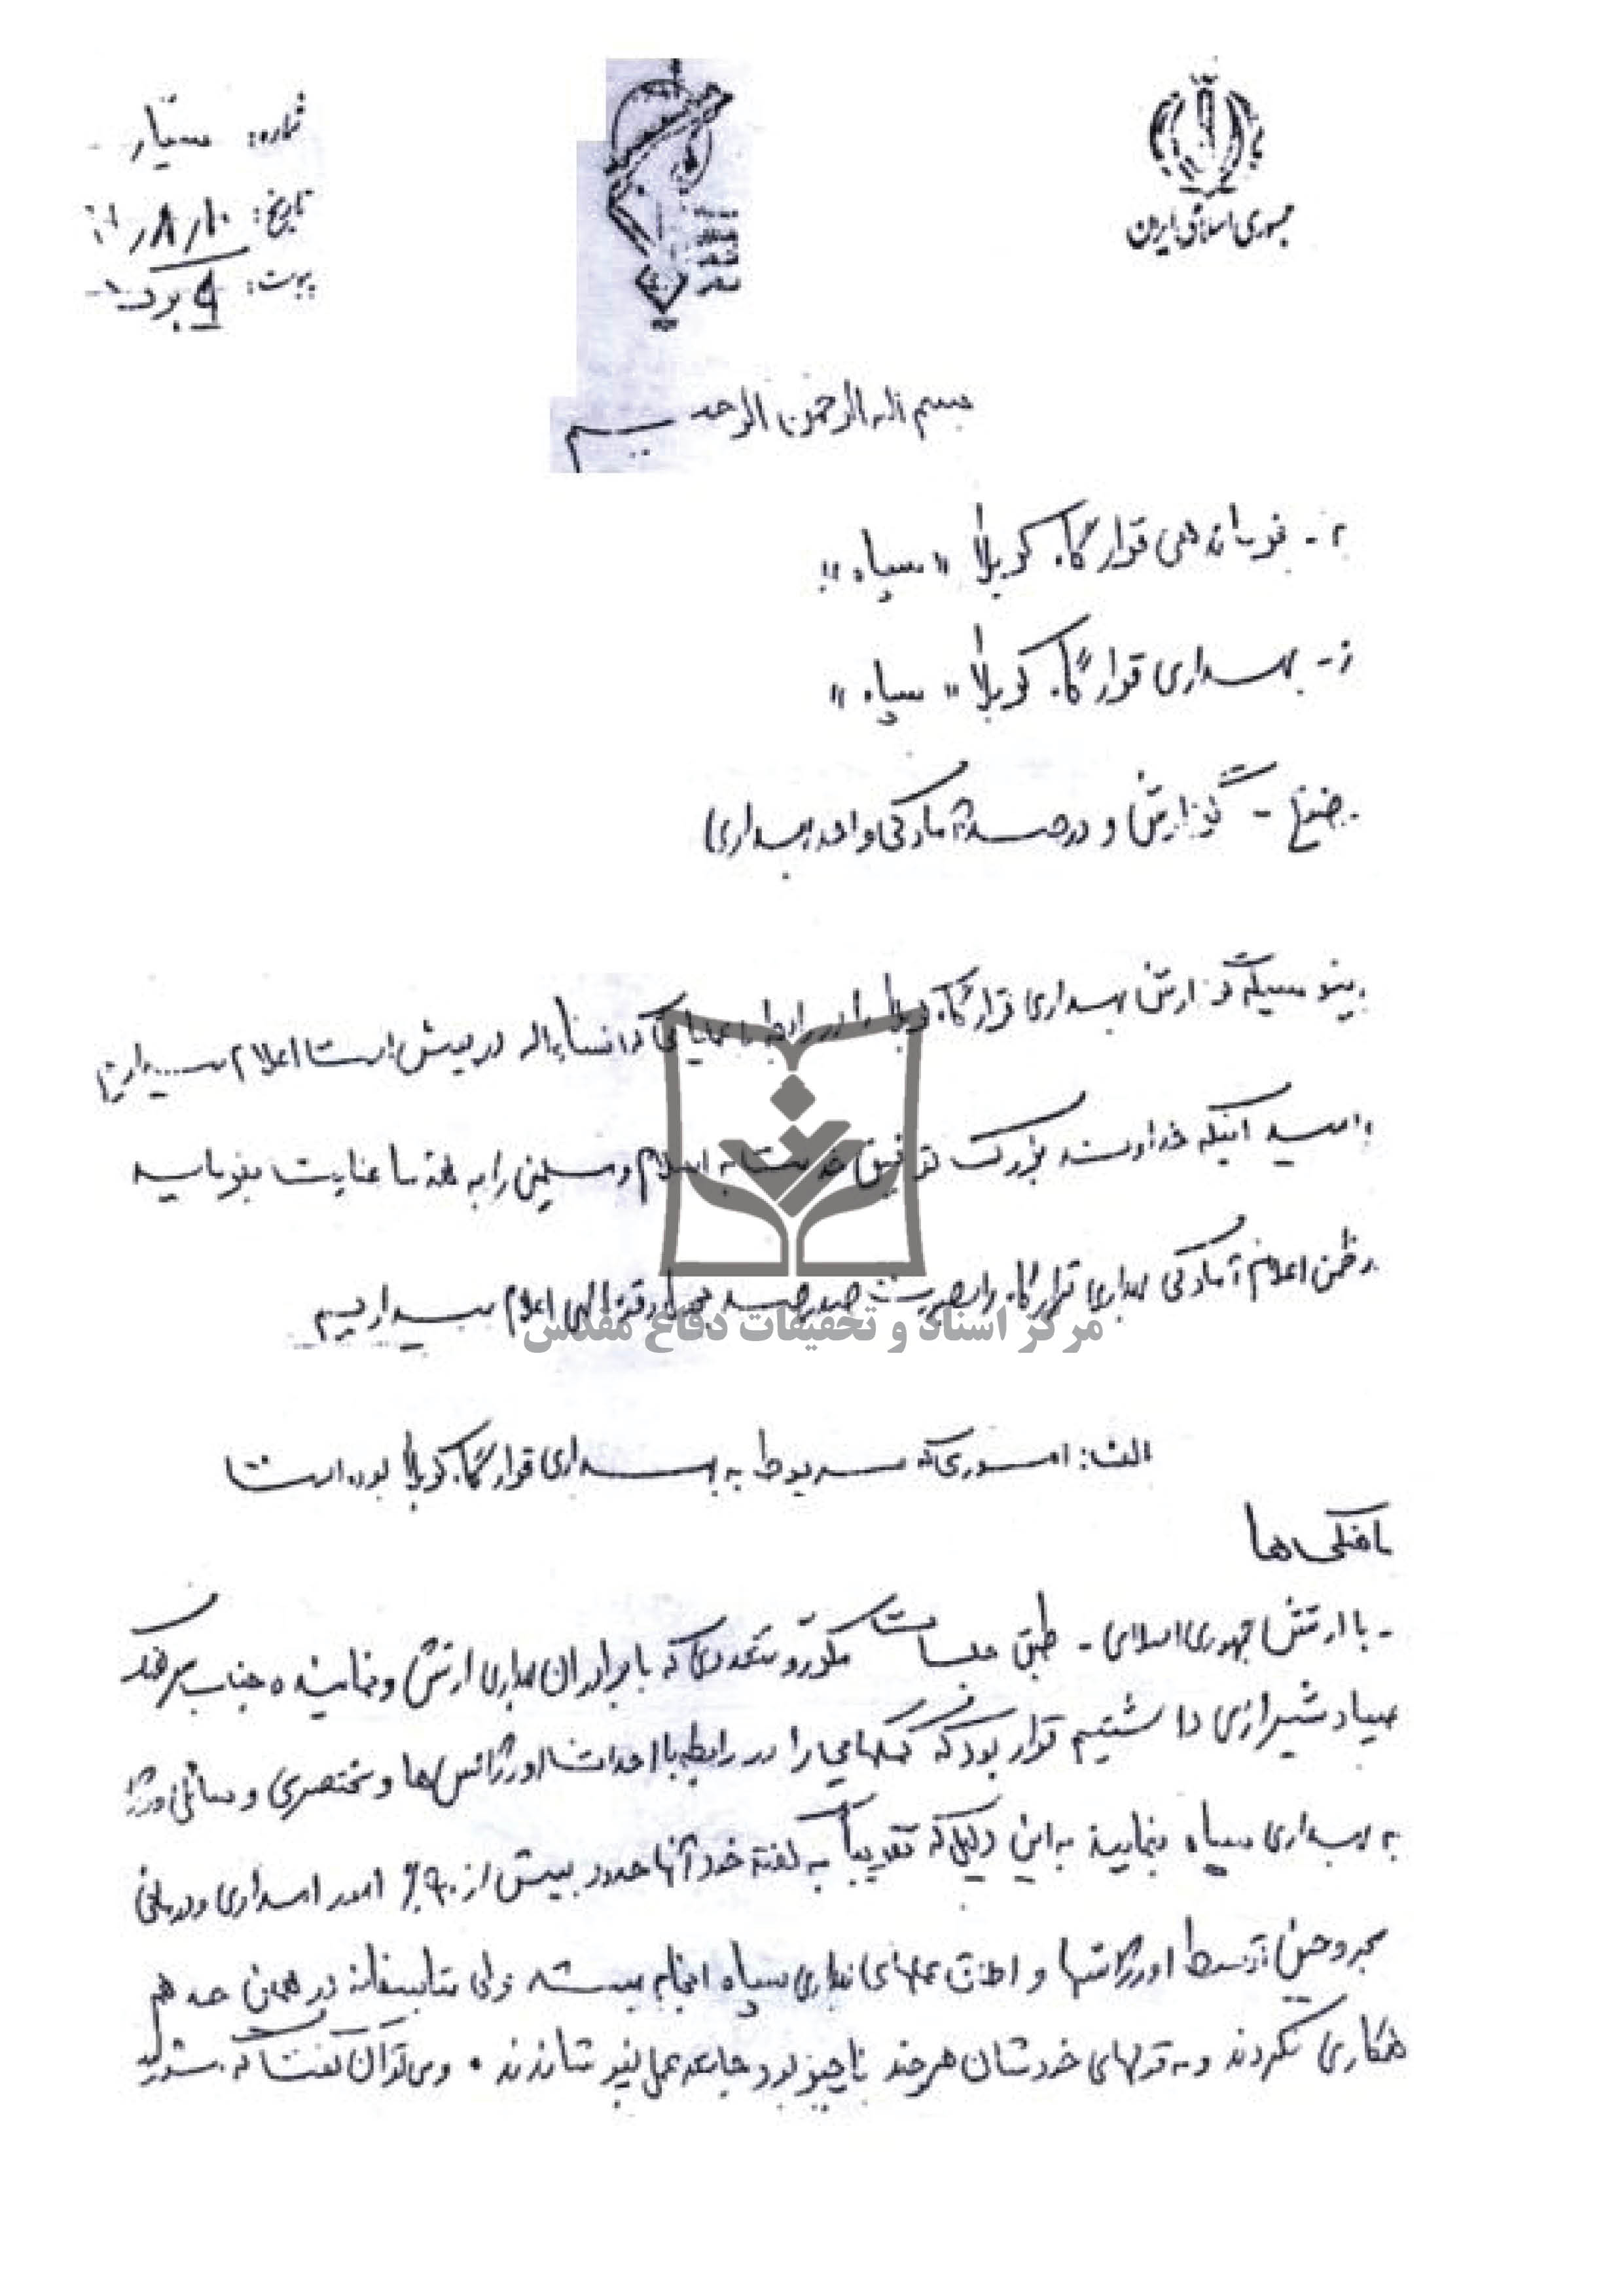 جمهوری اسلامی ایران
شماره: سیّار
تاریخ: ۸/۱۰
پیوست: ۹ برگ
بسم الله الرحمن الرحیم
فرماندهی قرارگاه کربلا «سپاه»
بهداری قرارگاه کربلا «سپاه»
گزارش و درصد آمادگی واحد بهداری)
بدینوسیله گزارش بهداری قرارگاه کربلا را در رابطه با عملیاتی که انشاءاله در پیش است اعلام میداریم
بامید اینکه خداوند بزرگ توفیق خدمت به اسلام و مسلمین را به همه ما عنایت بفرماید
ضمن اعلام آمادگی بهداری قرارگاه را بصورت صددرصد بحول و قوه الهی اعلام میداریم
مرکز اسناد و تحقیقات دفاع مقدس
الف: اموریکه مربوط به بهداری قرارگاه کربلا بوده است
هماهنگی ها
- با ارتش جمهوری اسلامی - طبق جلسات مکرر و متعددی که با برادران بهداری ارتش و نماینده جناب سرهنگ
صیاد شیرازی داشتیم قرار بود که کمکهایی را در رابطه با احداث اورژانس ها و مختصری وسائل
به بهداری سپاه بنمایند به این دلیل که تقریباً به گفته خود آنها حدود بیش از ۹۰٪ امور امدادی و درمانی
مجروحین توسط اورژانسها و اطاق عملهای بهداری سپاه انجام میشد ولی متاسفانه در همان حد هم
همکاری نکردند و به قولهای خودشان هر چند ناچیز بود جامعه عمل نپوشاندند. و می توان گفت که